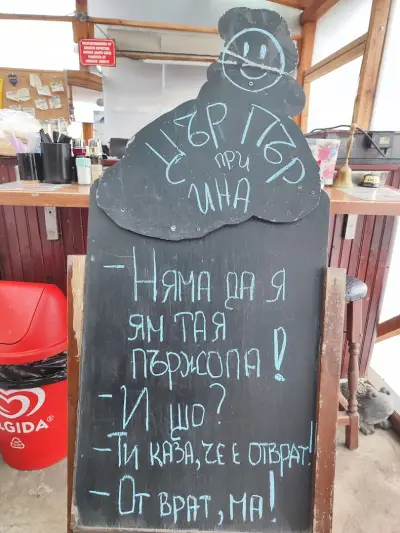 ЦЪР ПЪР
при
ИНА
– НЯМА ДА Я
ЯМ ТАЯ
ПЪРЖОЛА!
– И ШО?
– ТИ КАЗА, ЧЕ Е ОТВРАТ!
– ОТ ВРАТ, МА!
LGIDA